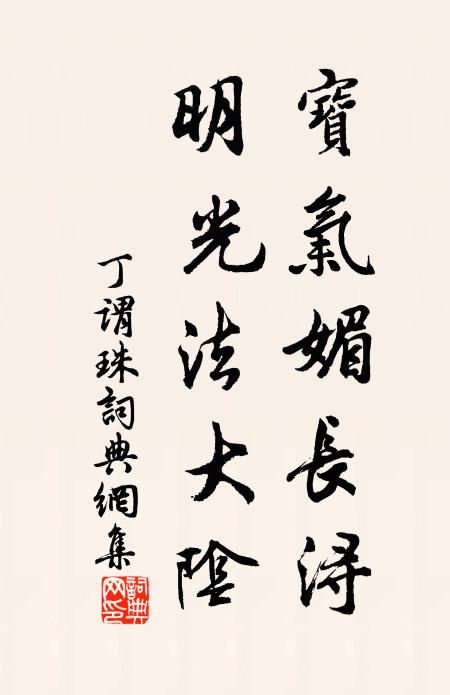 寶氣媚長潯
明光法大陰
丁謂珠詞典網集
詞典网印